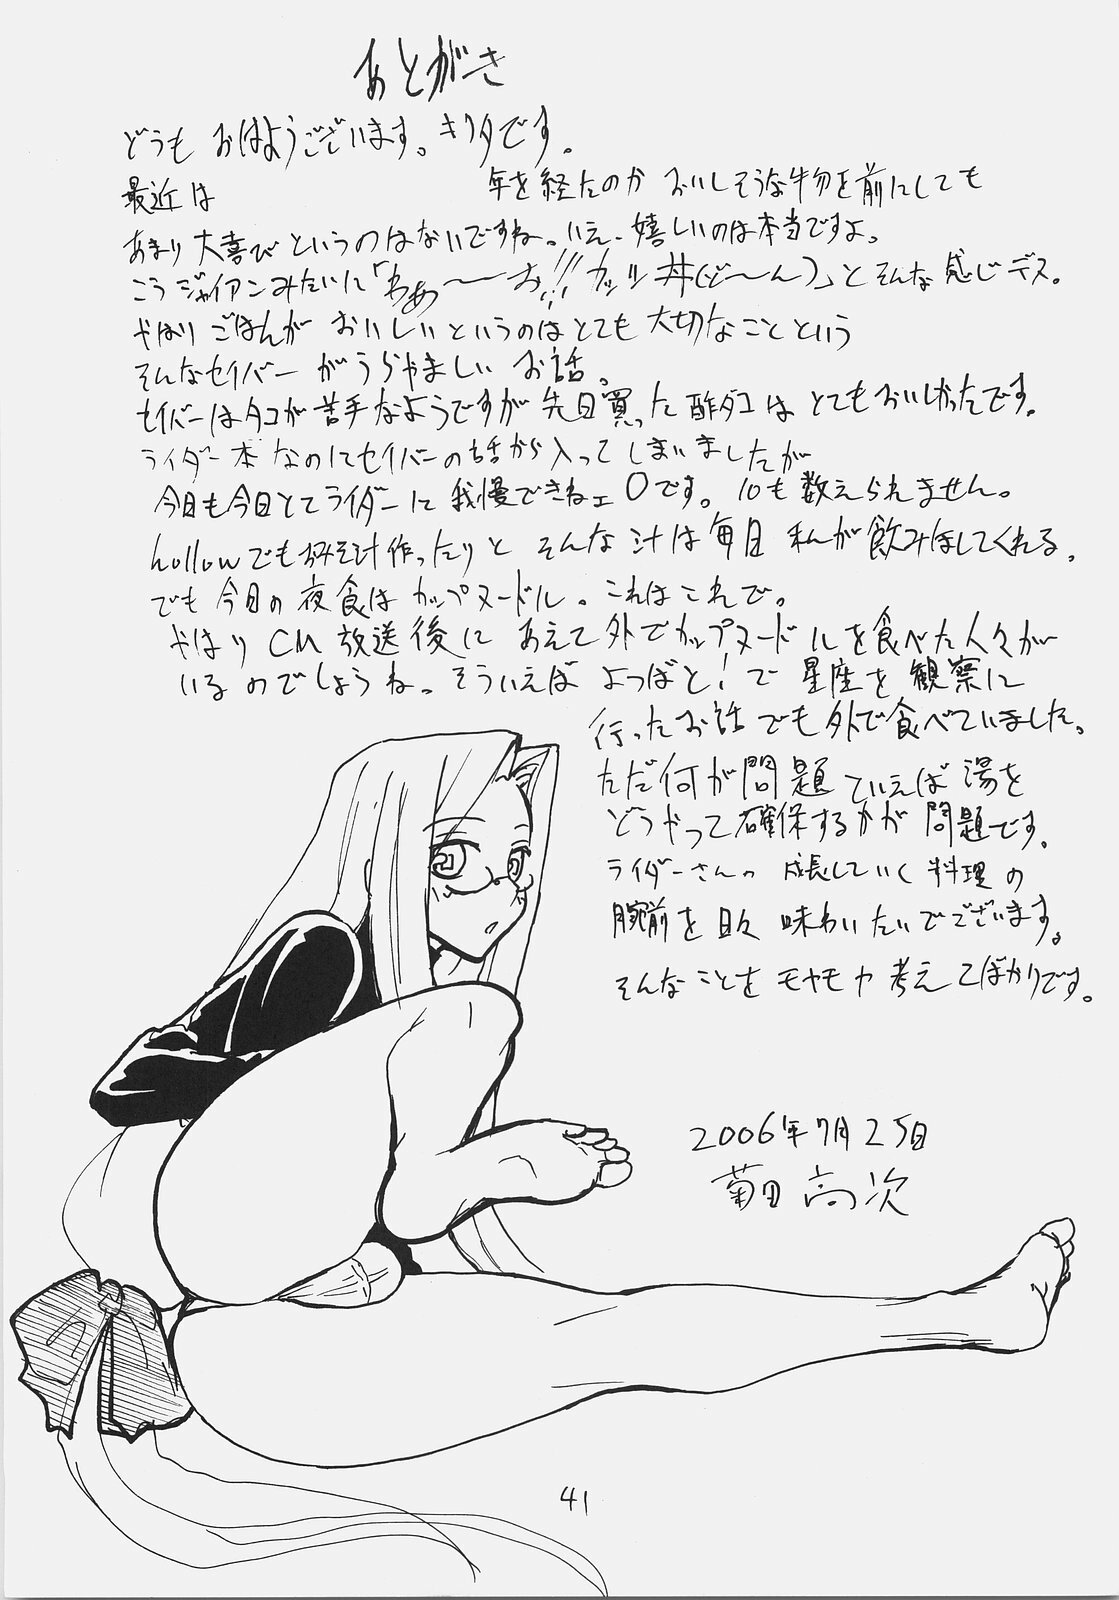 あとがき
どうも おはようございます。キクタです。
最近は 年を経たのか おいしそうな物を前にしても
あまり大喜びというのはないですね。いえ、嬉しいのは本当ですよ。
こうジャイアンみたいに「わぁ〜〜お!!!カツ丼(ど〜ん)」とそんな感じデス。
やはり ごはんが おいしいというのはとても大切なことという
そんなセイバーがうらやましい お話。
セイバーはタコが苦手なようですが先日買った酢ダコはとてもおいしかったです。
ライダー本なのにセイバーの話から入ってしまいましたが
今日も今日とてライダーに我慢できねェ0です。10も数えられません。
hollowでもおみそ汁作ったりと そんな汁は毎日 私が飲みほしてくれる。
でも今日の夜食はカップヌードル。これはこれで。
やはりCM放送後に あえて外でカップヌードルを食べた人々が
いるのでしょうね。そういえば よつばと!で 星座を観察に
行ったお話でも外で食べていました。
ただ何が問題ていえば湯を
どうやって確保するかが問題です。
ライダーさんの 成長していく料理の
腕前を日々 味わいたいでございます。
そんなことをモヤモヤ考えてばかりです。
2006年7月25日
菊田高次
41